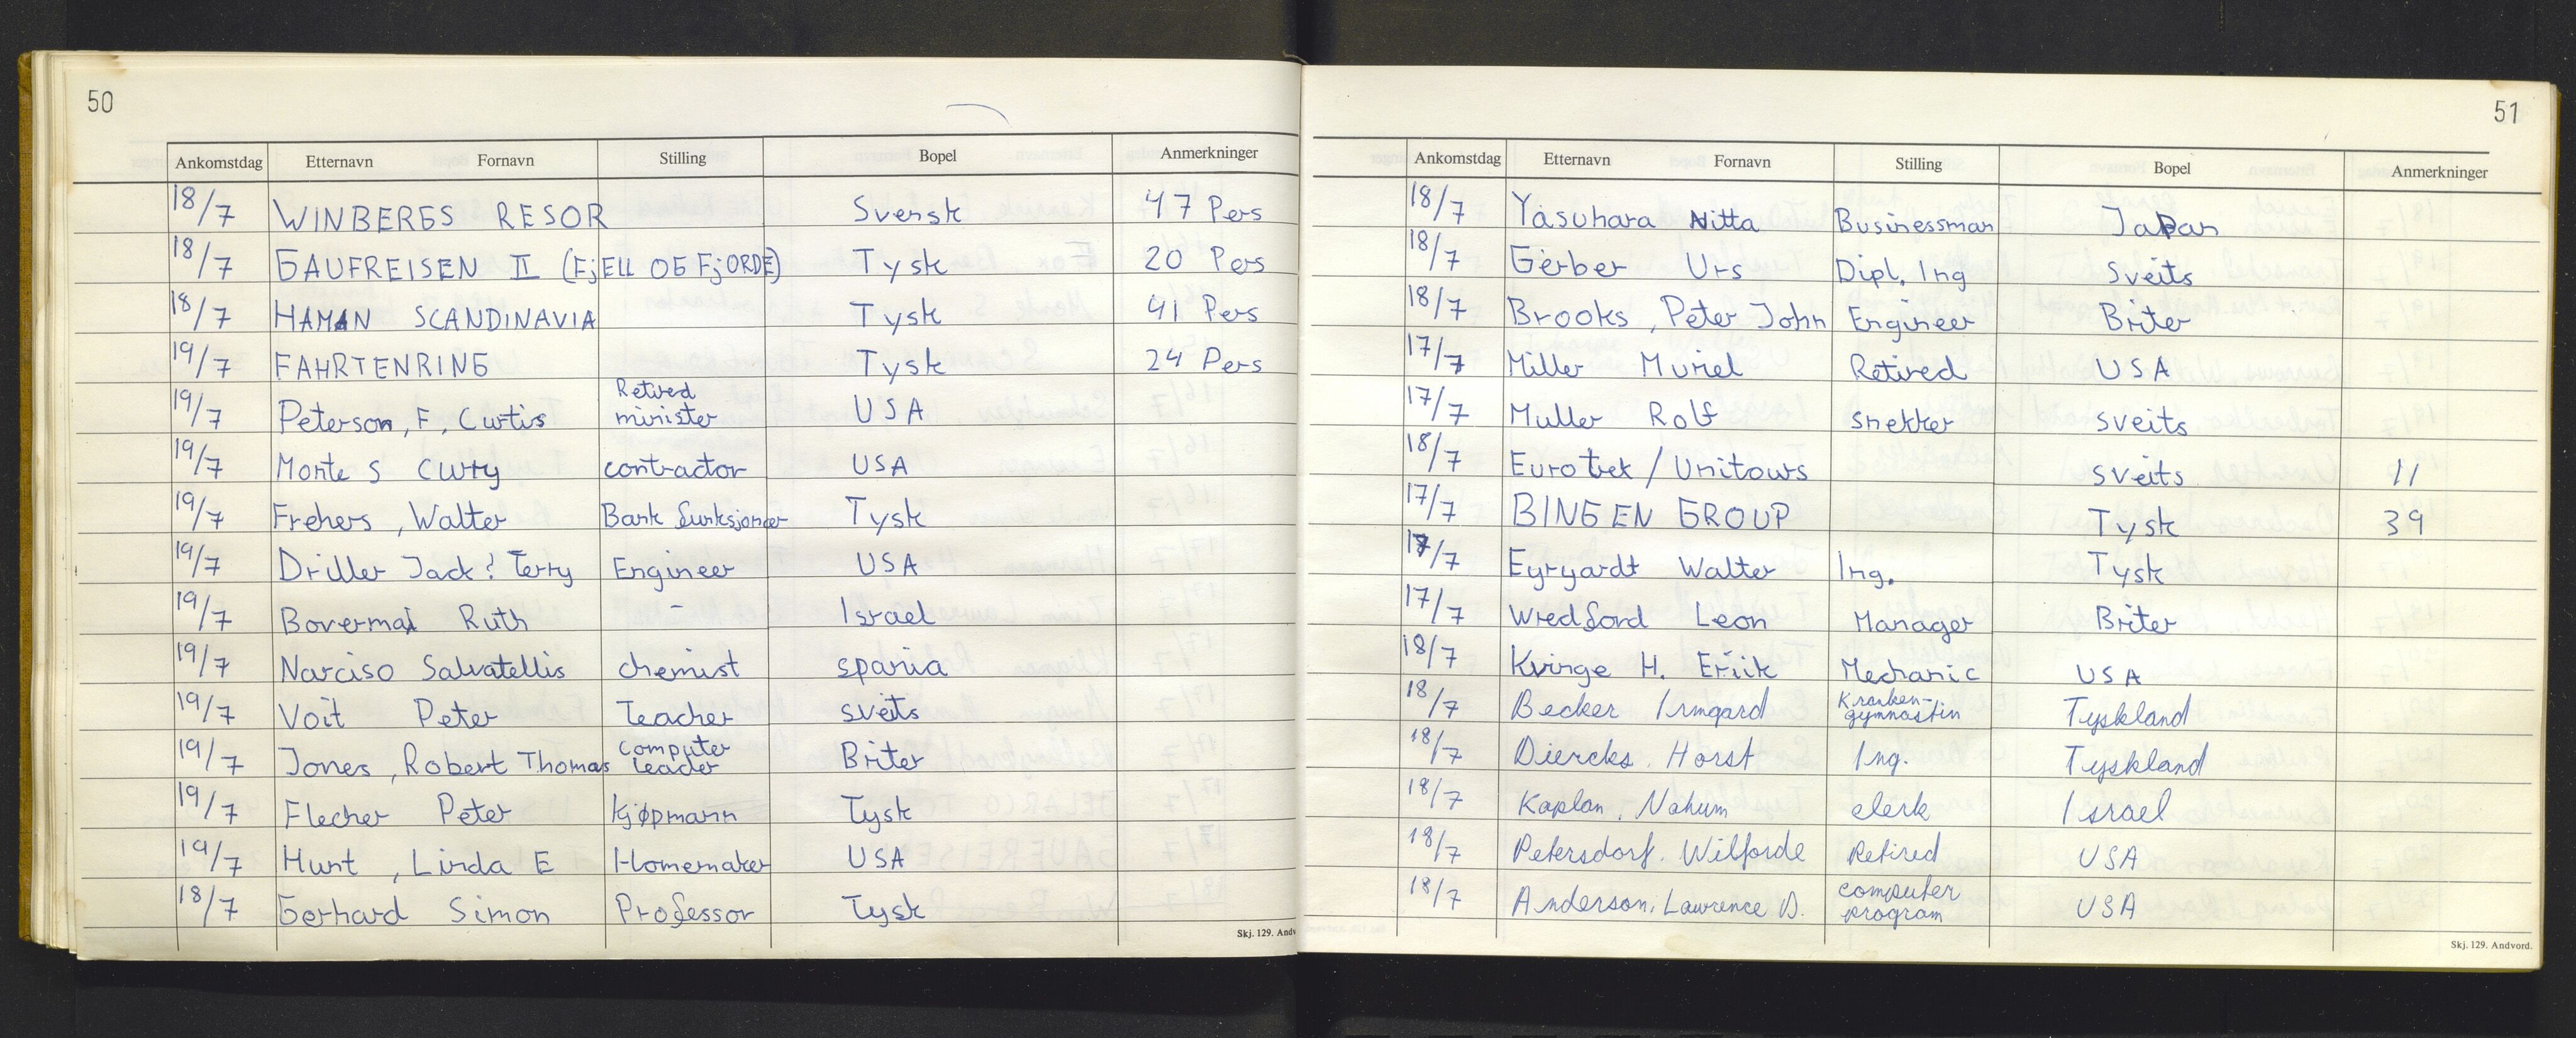 50
Ankomstdag Etternavn Fornavn Stilling Bopel Anmerkninger
18/7 WINBERGS RESOR Svensk 47 Pers
18/7 GAUFREISEN II (FjELL OG FjORDE) Tysk 20 Pers
18/7 HAMAN SCANDINAVIA Tysk 41 Pers
19/7 FAHRTENRING Tysk 24 Pers
19/7 Peterson, F, Curtis Retired minister USA
19/7 Monte S Curry contractor USA
19/7 Frehers, Walter Bank funksjonær Tysk
19/7 Driller Jack? Terry Engineer USA
19/7 Ruth - Israel
19/7 Narciso Salvatellis chemist spania
19/7 Voit Peter Teacher sveits
19/7 Jones, Robert Thomas computer leader Briter
19/7 Flecher Peter kjøpmann Tysk
19/7 Hunt, Linda E Homemaker USA
18/7 Gerhard Simon Professor Tysk
Skj. 129. Andv
51
Ankomstdag Etternavn Fornavn Stilling Bopel Anmerkninger
18/7 Yasuhara Nitta Businessman Japan
18/7 Gerber Urs Dipl. Ing Sveits
18/7 Brooks, Peter John Engineer Briter
17/7 Miller Muriel Retired USA
17/7 Muller Rolf snekker sveits
18/7 Eurotrek / Unitours sveits 11
17/7 BINGEN GROUP Tysk 39
17/7 Eyryardt Walter Ing. Tysk
17/7 Wredford Leon Manager Briter
18/7 Kvinge H. Eriik Mechanic USA
18/7 Becker Irmgard Kranken-gymnastin Tyskland
18/7 Diercks. Horst Ing. Tyskland
18/7 Kaplan, Nahum clerk Israel
18/7 Petersdorf. Wilforde Retired USA
18/7 Anderson, Lawrence D. computer program USA
Skj. 129. Andvord.